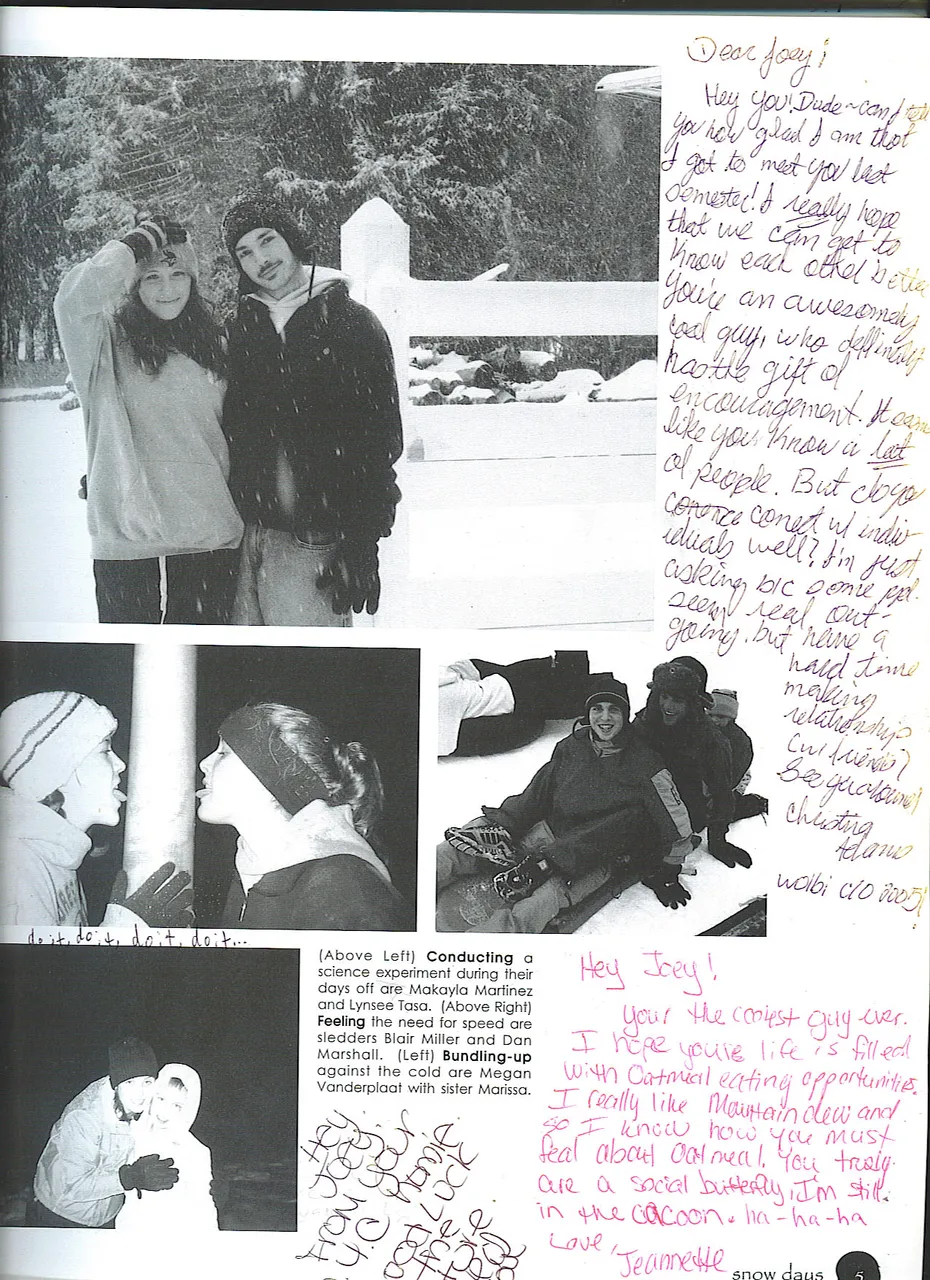 Dear Joey!
Hey You! Dude~can I tell
you how glad I am that
I got to meet you last
semester! I really hope
that we can get to
know each other better
You're an awesomely
cool guy, who definitely
has the gift of
encouragement. It
like you know a lot
of people. But do you
conect w/ indiv-
iduals well? I'm just
asking b/c some ppl.
seem real out-
going, but have a
hard time
making
relationships
friends?
See ya around
Adams
wolbi c/o 2005!
do it, do it, do it, do it...
(Above Left) Conducting a
science experiment during their
days off are Makayla Martinez
and Lynsee Tasa. (Above Right)
Feeling the need for speed are
sledders Blair Miller and Dan
Marshall. (Left) Bundling-up
against the cold are Megan
Vanderplaat with sister Marissa.
Hey Joey!
Your the coolest guy ever.
I hope youre life is filled
with Oatmeal eating opportunities.
I really like Mountain dew and
so I know how you must
feal about Oatmeal. You truly
are a social butterfly, I'm still
in the cacoon. ha-ha-ha
Love,
Jeannette
Hey
Joey!
From
snow days
5